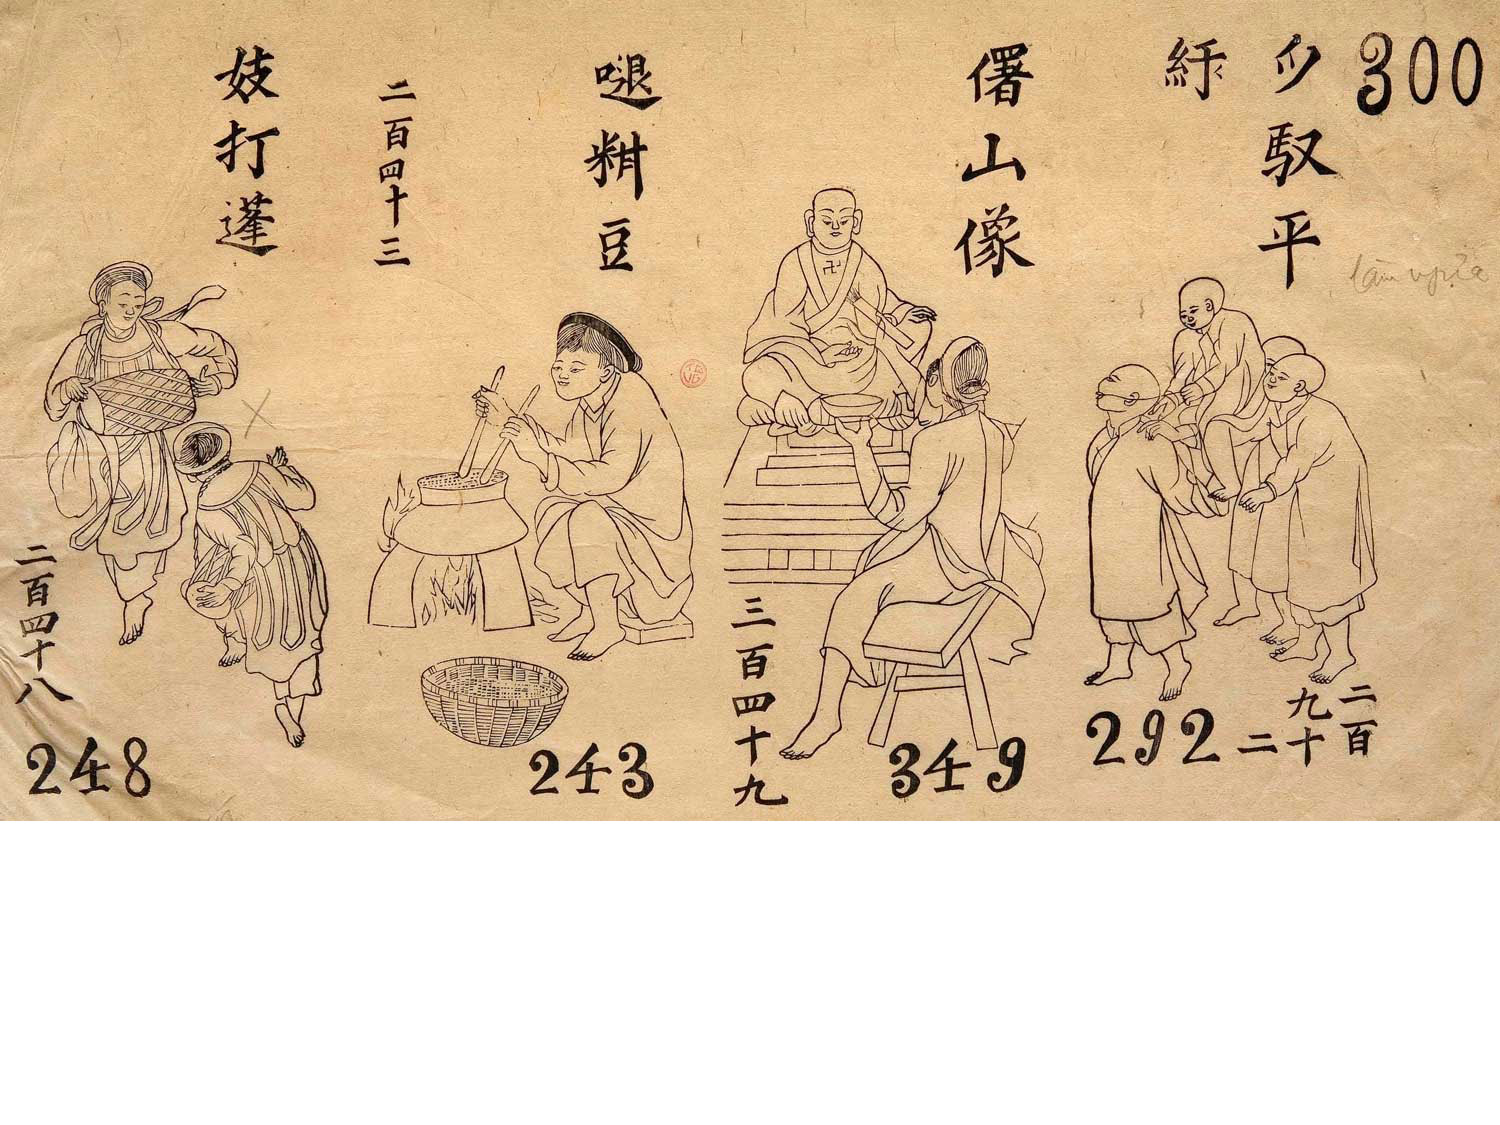 300
馭平
𠏲山像
𠺙粓豆
二百四十三
妓打蓬
二百九十二
292
三百四十九
349
243
二百四十八
248